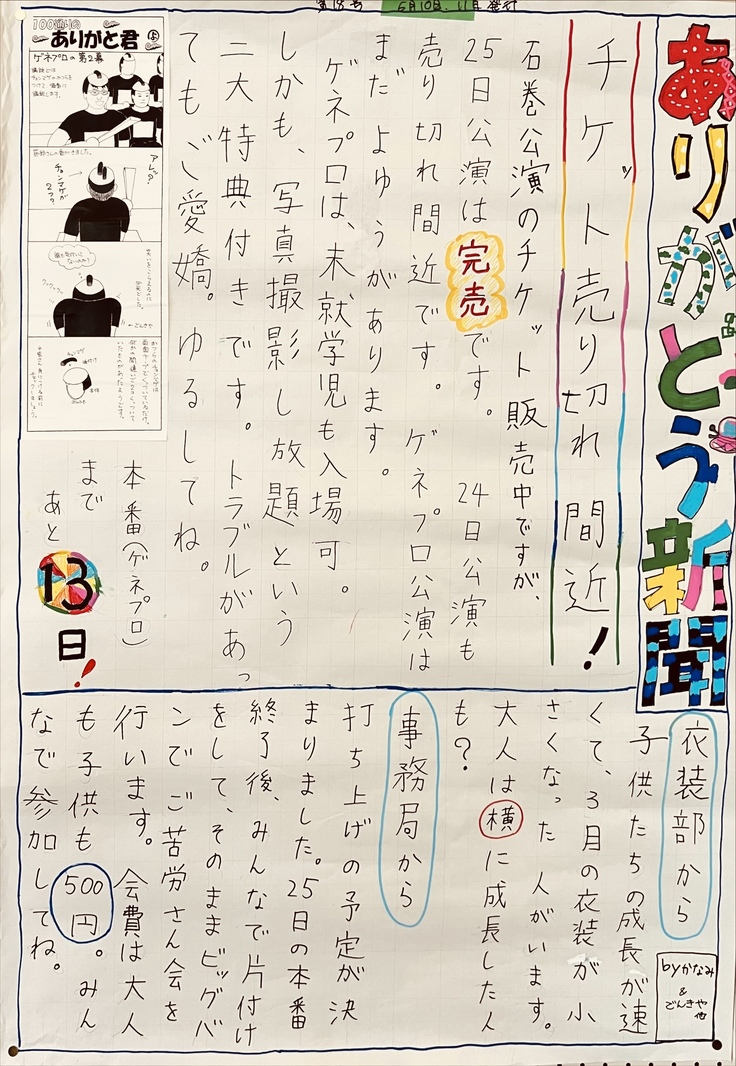 第18号 5月10日、11日 発行
ありがとう新聞
チケット売り切れ間近！
石巻公演のチケット販売中ですが、
25日公演は完売です。24日公演も
売り切れ間近です。ゲネプロ公演は
まだよゆうがあります。
ゲネプロは、未就学児も入場可。
しかも、写真撮影し放題という
二大特典付きです。トラブルがあっ
てもご愛嬌。ゆるしてね。
本番(ゲネプロ)
まで
あと
13
日！
100通りの
ありがと君
ゲネプロの第2幕
アレッ？
チョンマゲが
2つ？
←ごんきや
衣装部から
子供たちの成長が速
くて、3月の衣装が小
さくなった人がいます。
大人は横に成長した人
も？
事務局から
打ち上げの予定が決
まりました。25日の本番
終了後、みんなで片付け
をして、そのままビッグバ
ンでご苦労さん会を
行います。会費は大人
も子供も500円。みん
なで参加してね。
byかなみ
&
ごんきや
他